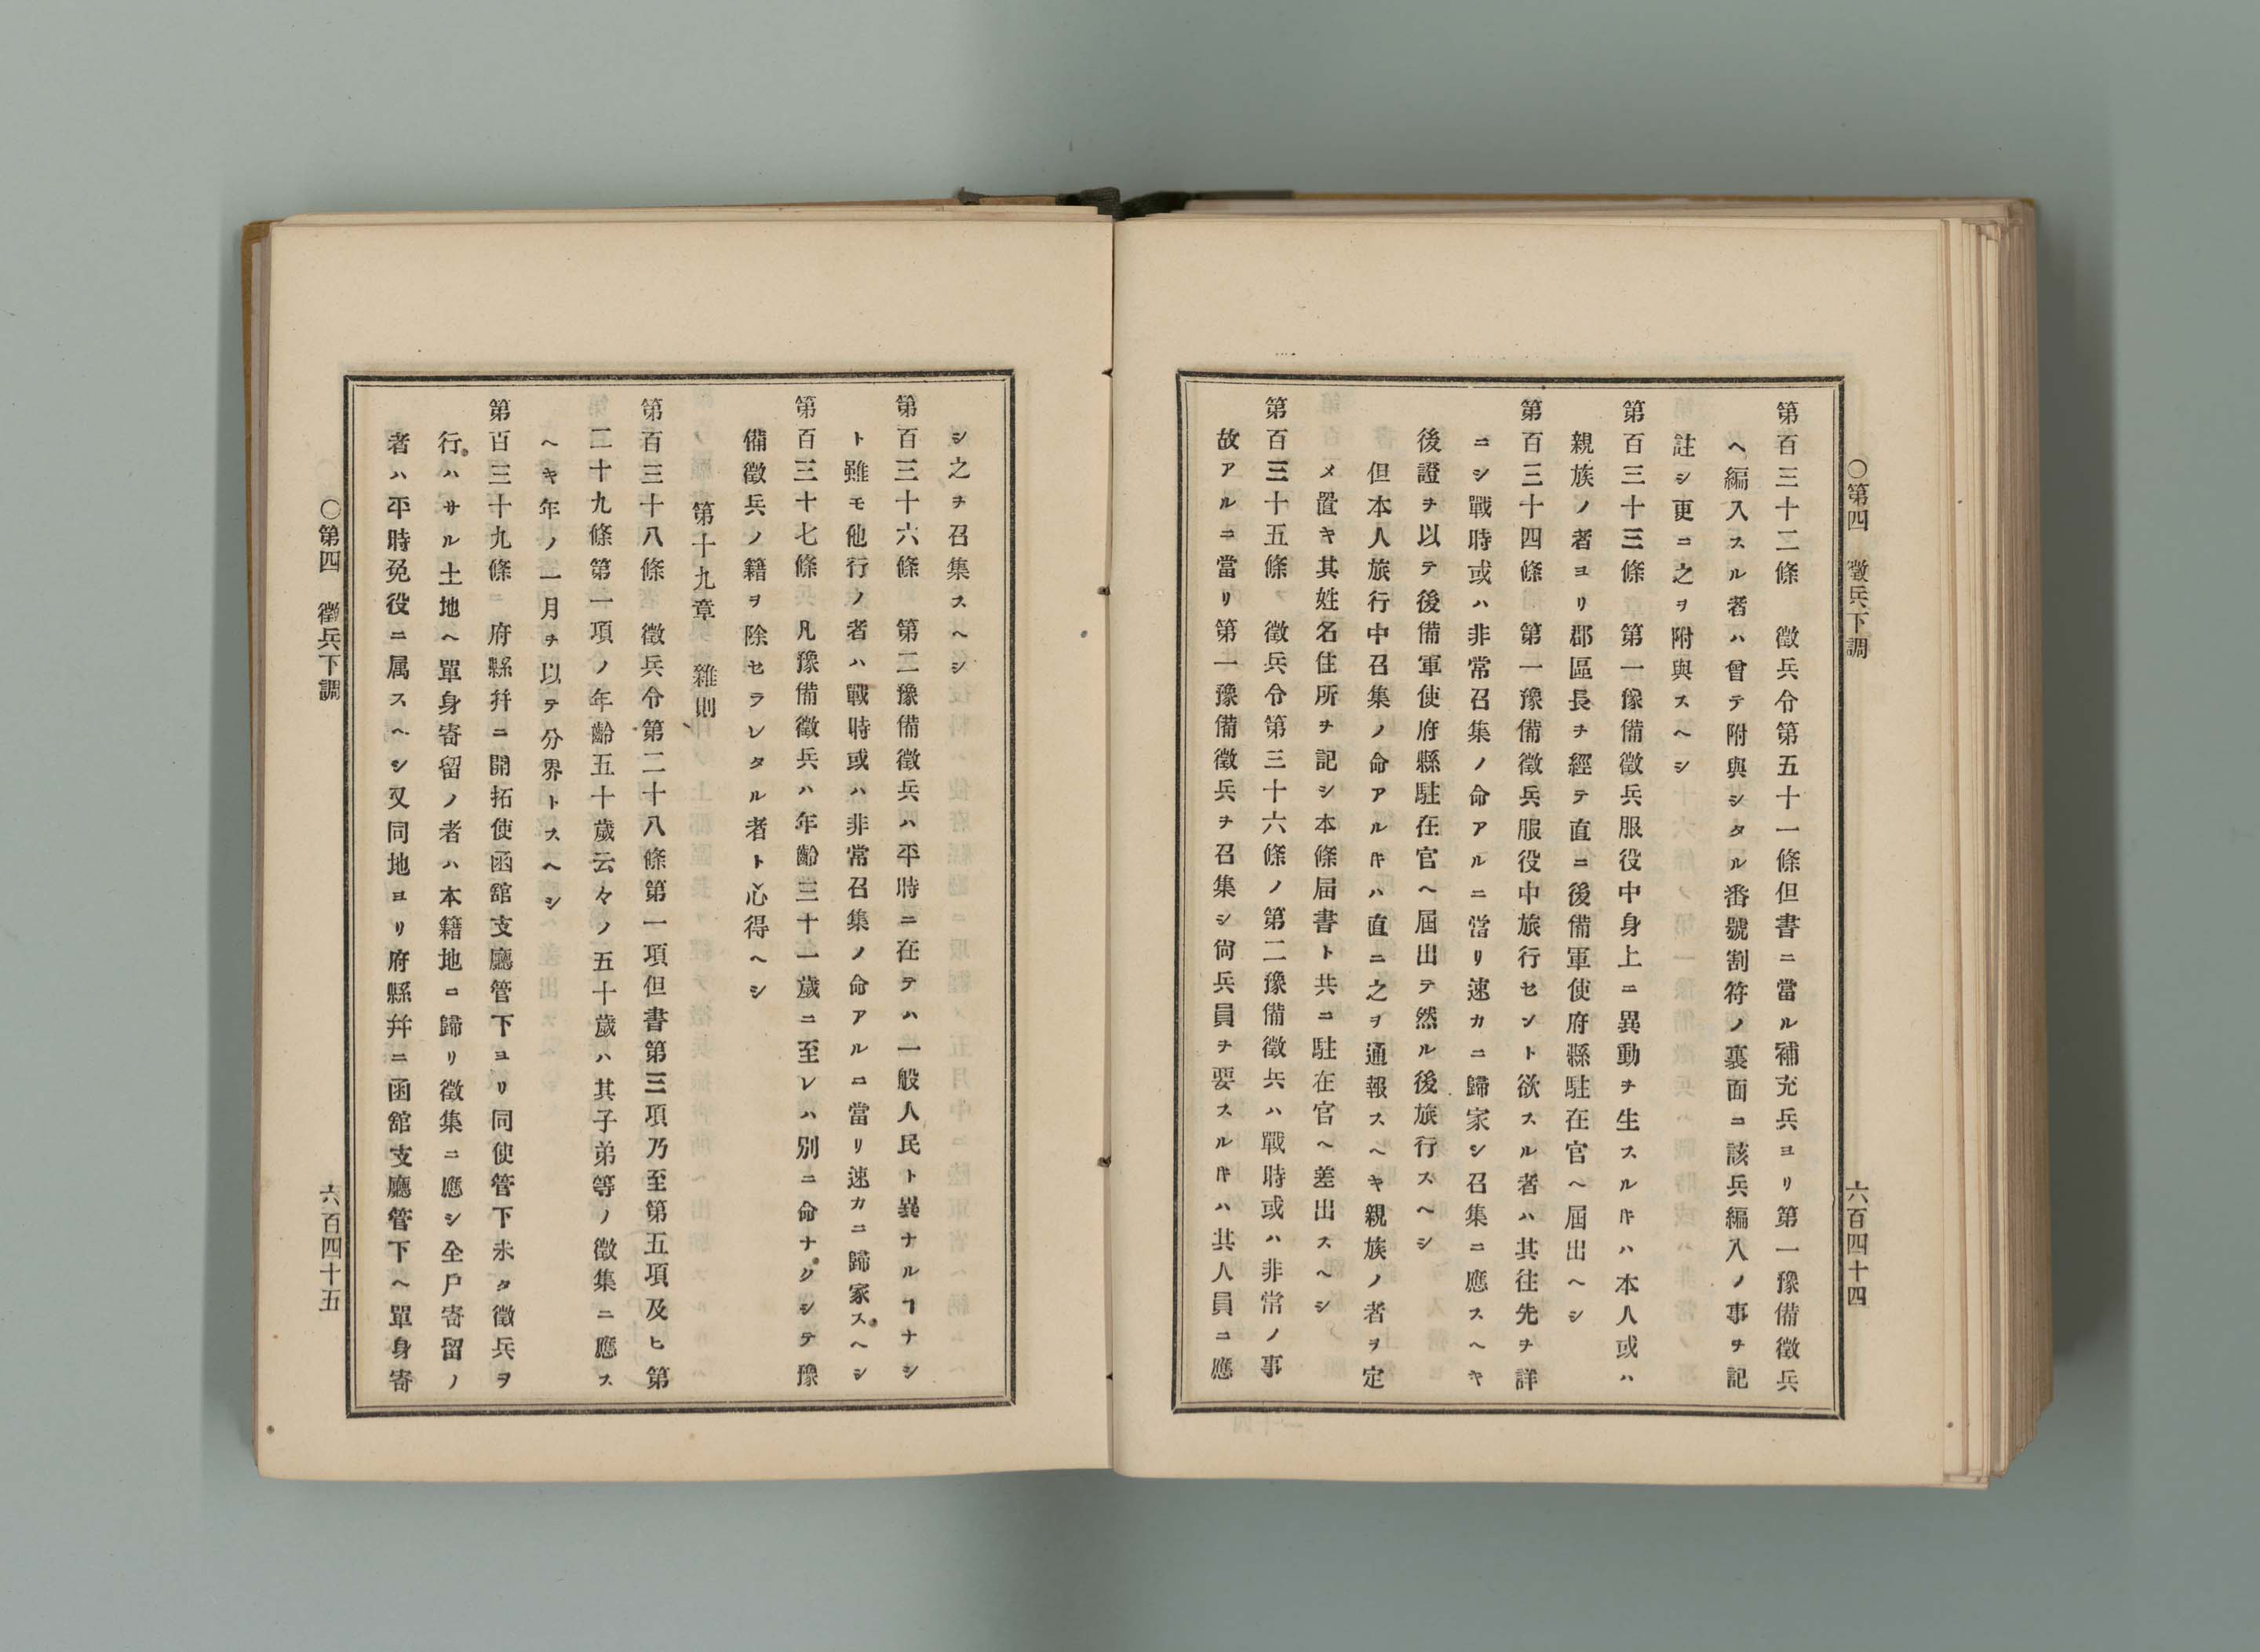 〇第四　徵兵下調
第百三十二條　徵兵令第五十一條但書ニ當ル補充兵ヨリ第一豫備徵兵
ヘ編入スル者ハ曾テ附與シタル番號割符ノ裏面ニ該兵編入ノ事ヲ記
註シ更ニ之ヲ附與スヘシ
第百三十三條　第一豫備徵兵服役中身上ニ異動ヲ生スルキハ本人或ハ
親族ノ者ヨリ郡區長ヲ經テ直ニ後備軍使府縣駐在官ヘ屆出ヘシ
第百三十四條　第一豫備徵兵服役中旅行セント欲スル者ハ其往先ヲ詳
ニシ戰時或ハ非常召集ノ命アルニ當リ速カニ歸家シ召集ニ應スヘキ
後證ヲ以テ後備軍使府縣駐在官ヘ屆出テ然ル後旅行スヘシ
但本人旅行中召集ノ命アルキハ直ニ之ヲ通報スヘキ親族ノ者ヲ定
メ置キ其姓名住所ヲ記シ本條届書ト共ニ駐在官ヘ差出スヘシ
第百三十五條　徵兵令第三十六條ノ第二豫備徵兵ハ戰時或ハ非常ノ事
故アルニ當リ第一豫備徵兵ヲ召集シ尙兵員ヲ要スルキハ其人員ニ應
六百四十四
シ之ヲ召集スヘシ
第百三十六條　第二豫備徵兵ハ平時ニ在テハ一般人民ト異ナルヿナシ
ト雖モ他行ノ者ハ戰時或ハ非常召集ノ命アルニ當リ速カニ歸家スヘシ
第百三十七條　凡豫備徵兵ハ年齡三十一歲ニ至レハ別ニ命ナクシテ豫
備徵兵ノ籍ヲ除セラレタル者ト心得ヘシ
第十九章　雜則
第百三十八條　徵兵令第二十八條第一項但書第三項乃至第五項及ヒ第
二十九條第一項ノ年齡五十歲云々ノ五十歲ハ其子弟等ノ徵集ニ應ス
ヘキ年ノ一月ヲ以テ分界トスヘシ
第百三十九條　府縣幷ニ開拓使函舘支廳管下ヨリ同使管下未タ徵兵ヲ
行ハサル土地ヘ單身寄留ノ者ハ本籍地ニ歸リ徵集ニ應シ全戶寄留ノ
者ハ平時免役ニ属スヘシ又同地ヨリ府縣幷ニ函舘支廳管下ヘ單身寄
〇第四　徵兵下調
六百四十五